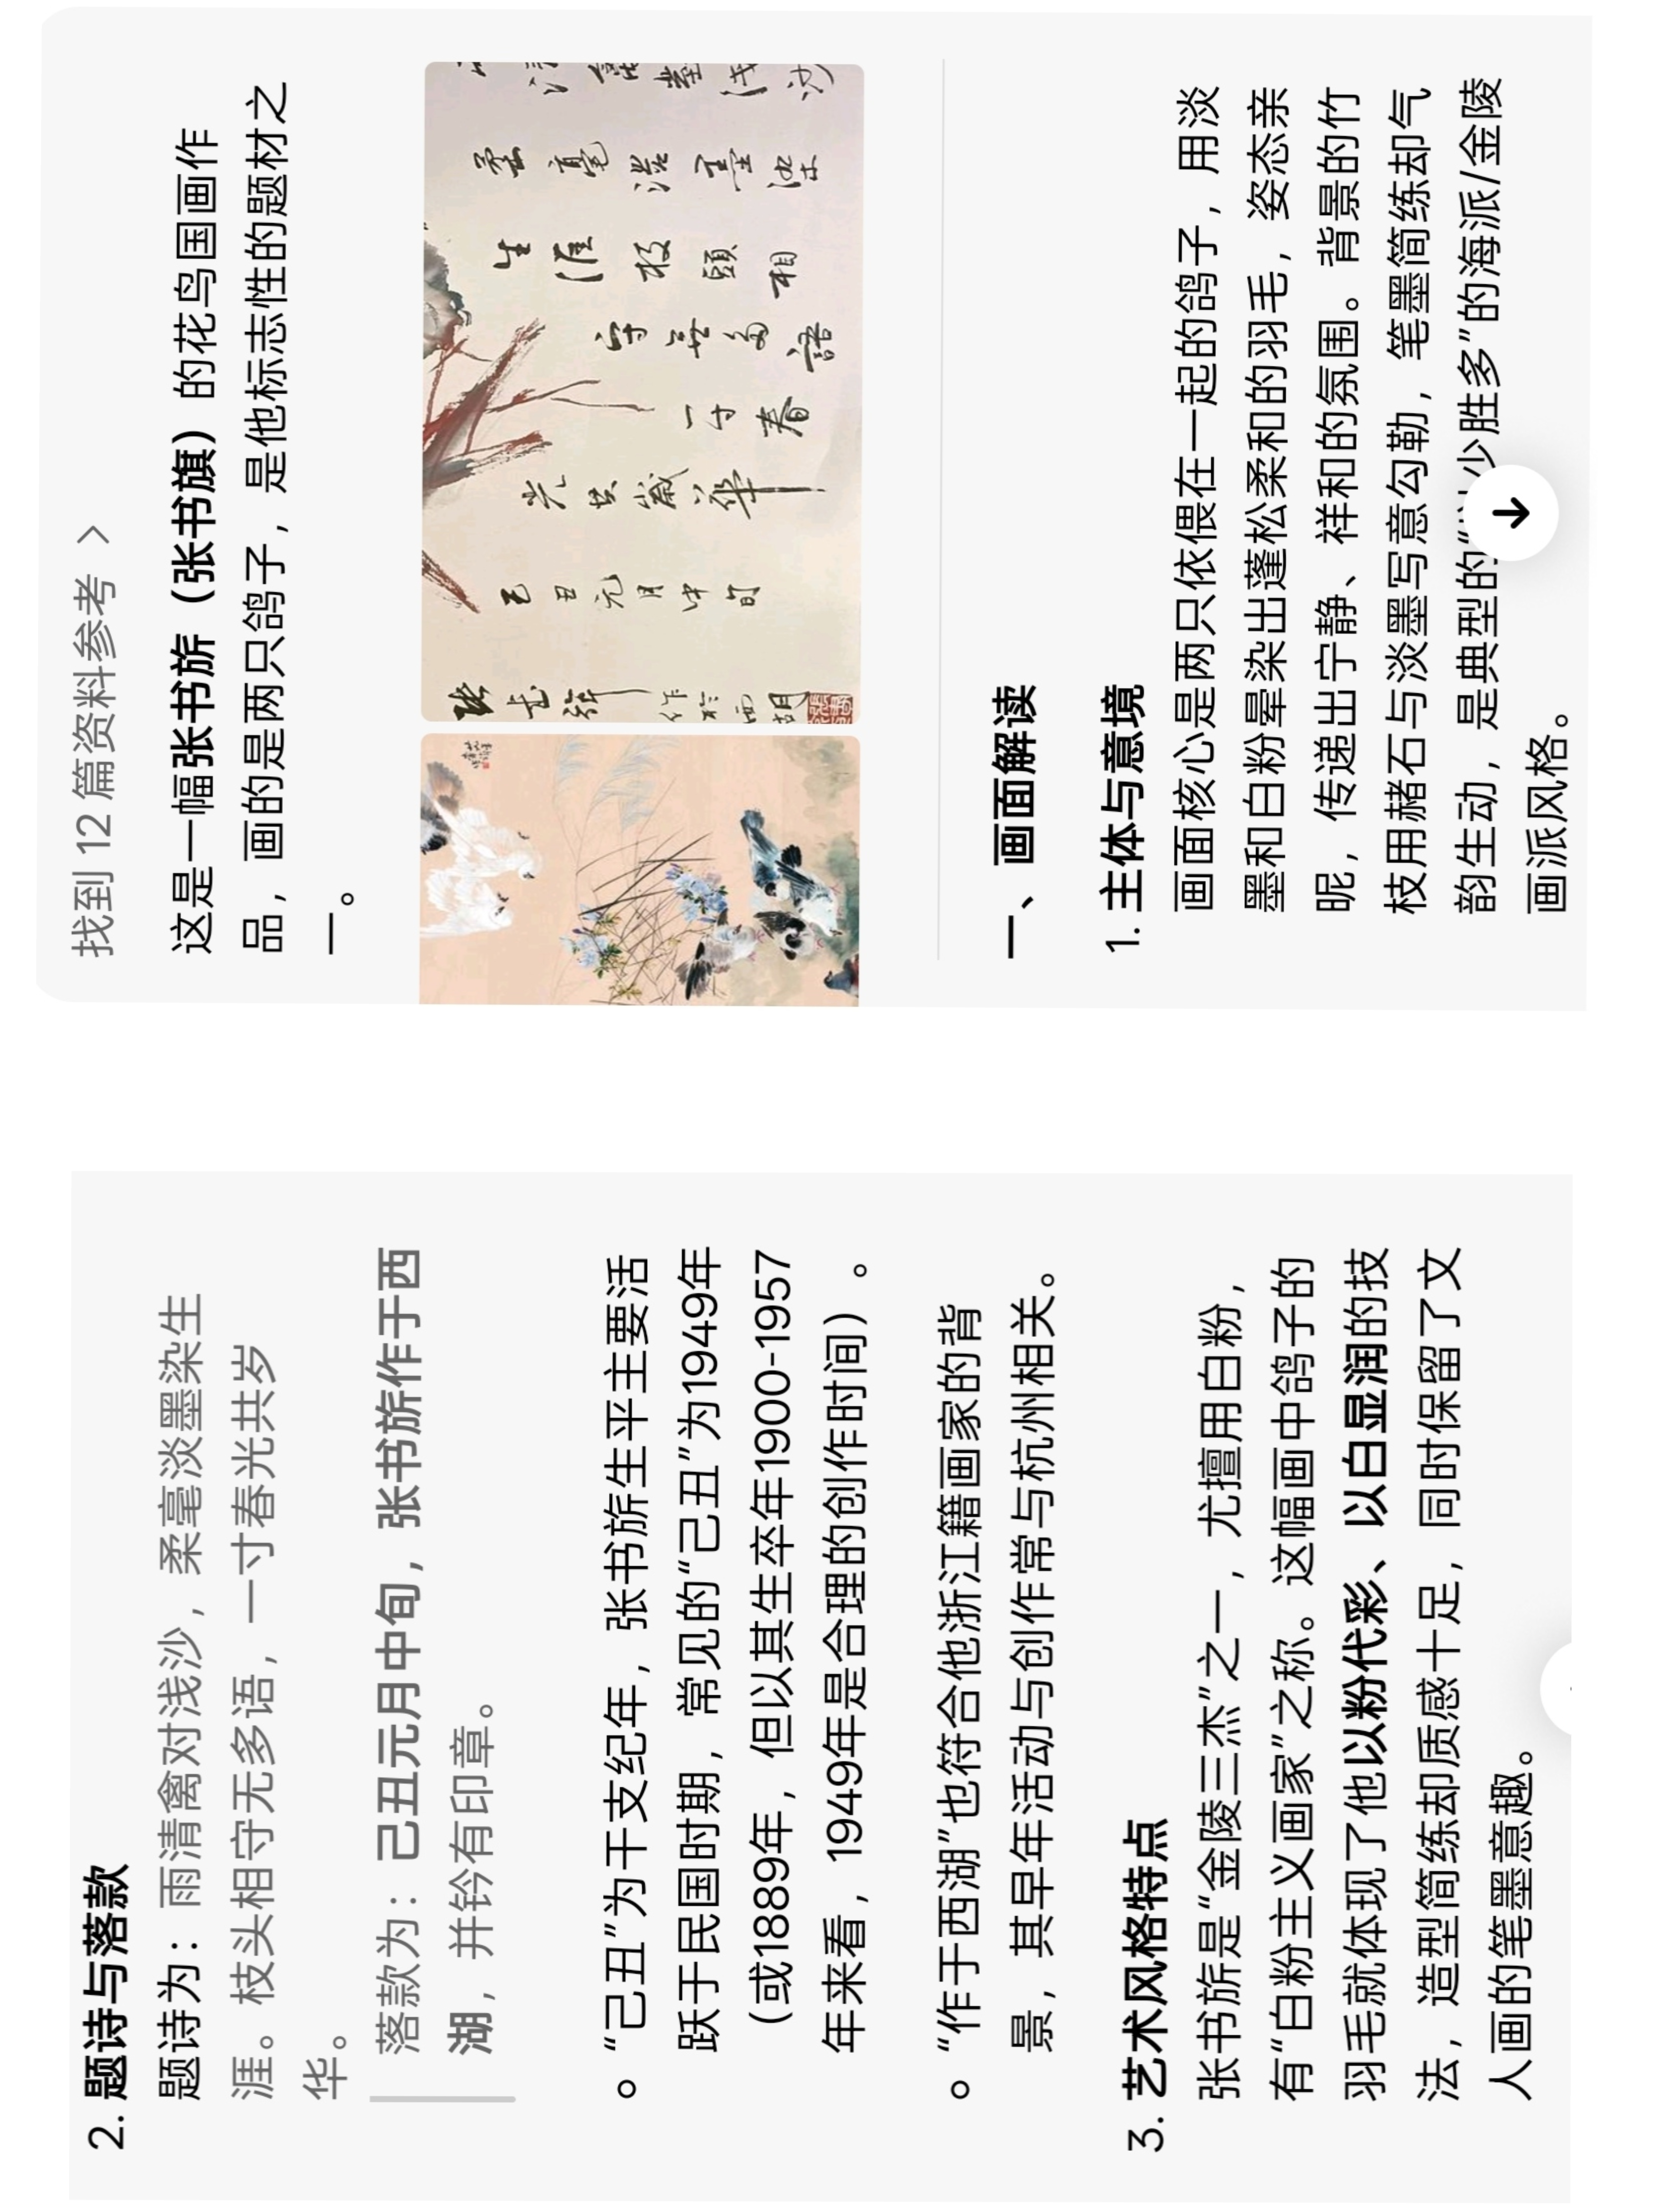 找到 12 篇资料参考 >
这是一幅张书旂（张书旗）的花鸟国画作
品，画的是两只鸽子，是他标志性的题材之
一。
毫淡墨染
生涯枝頭相
守無多語
一寸春
光共歲華
己丑元月中旬
作於西湖
一、画面解读
1. 主体与意境
画面核心是两只依偎在一起的鸽子，用淡
墨和白粉晕染出蓬松柔和的羽毛，姿态亲
昵，传递出宁静、祥和的氛围。背景的竹
枝用赭石与淡墨写意勾勒，笔墨简练却气
韵生动，是典型的“以少胜多”的海派/金陵
画派风格。
2. 题诗与落款
题诗为：雨清禽对浅沙，柔毫淡墨染生
涯。枝头相守无多语，一寸春光共岁
华。
落款为：己丑元月中旬，张书旂作于西
湖，并钤有印章。
“己丑”为干支纪年，张书旂生平主要活
跃于民国时期，常见的“己丑”为1949年
（或1889年，但以其生卒年1900-1957
年来看，1949年是合理的创作时间）。
“作于西湖”也符合他浙江籍画家的背
景，其早年活动与创作常与杭州相关。
3. 艺术风格特点
张书旂是“金陵三杰”之一，尤擅用白粉，
有“白粉主义画家”之称。这幅画中鸽子的
羽毛就体现了他以粉代彩、以白显润的技
法，造型简练却质感十足，同时保留了文
人画的笔墨意趣。